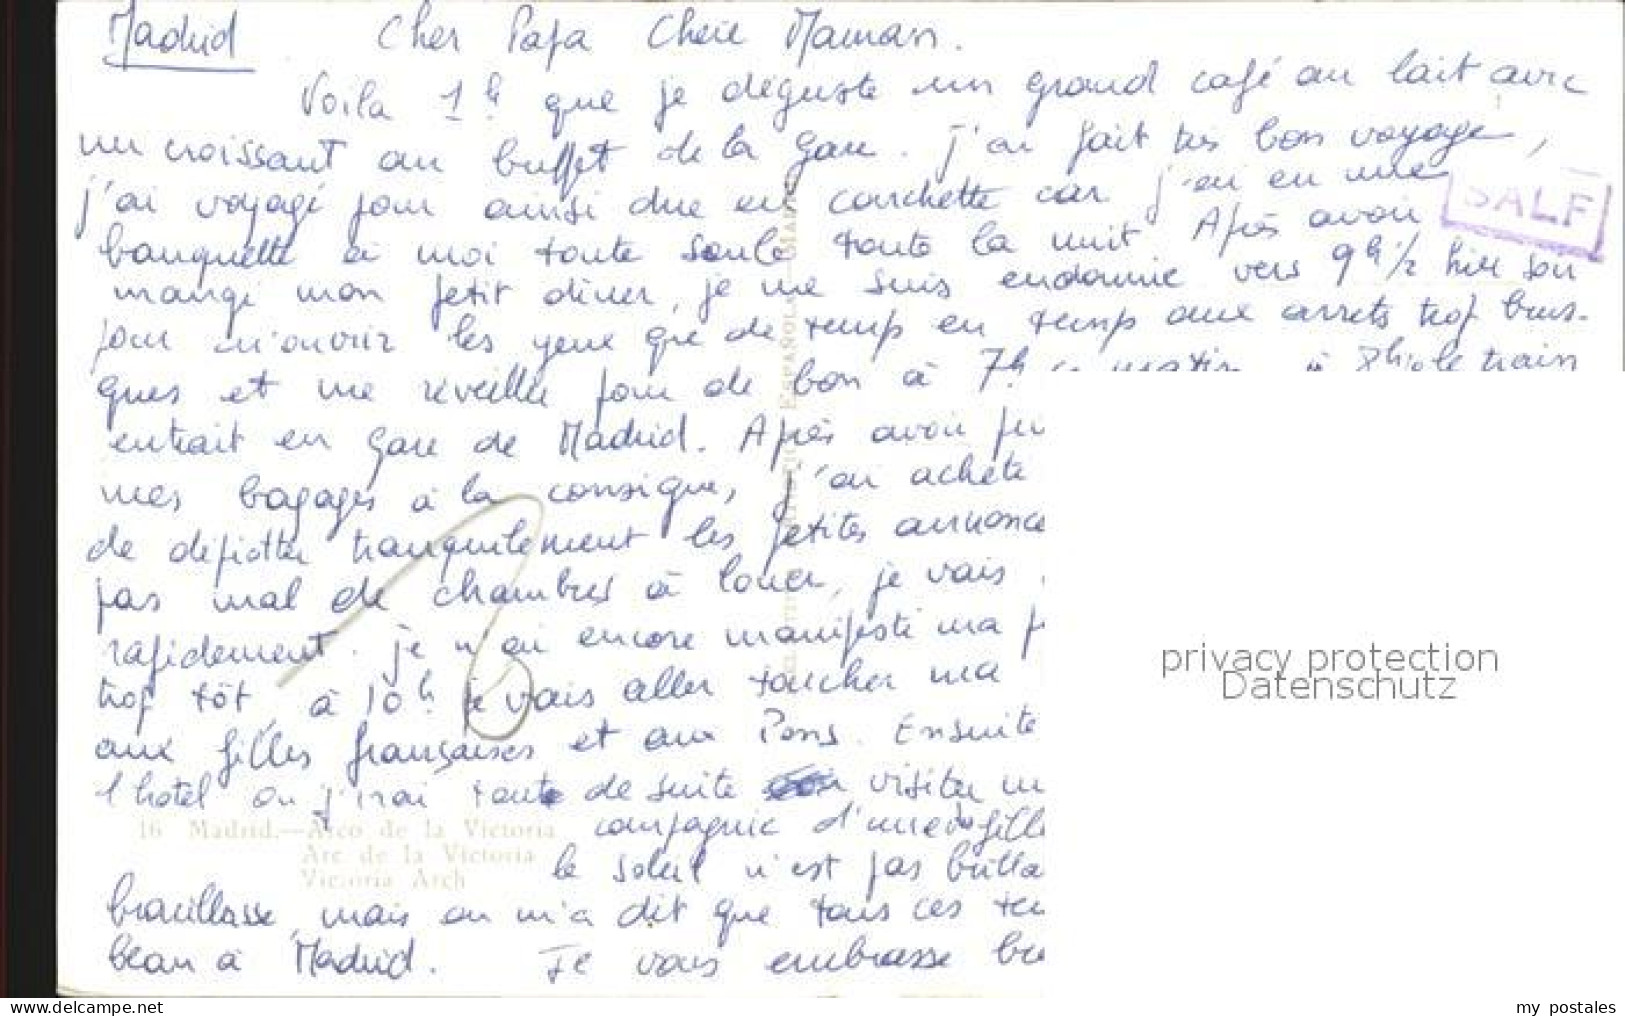 Madrid Cher Papa Chère Maman.
Voila 1h que je déguste un grand café au lait avec
un croissant au buffet de la gare. J'ai fait très bon voyage,
j'ai voyagé pour ainsi dire en couchette car j'ai eu une
banquette à moi toute seule toute la nuit. Après avoir
SALF
mangé mon petit diner, je me suis endormie vers 9h 1/2 hier soir
pour m'ouvrir les yeux que de temp en temp aux arrets trop brus-
ques et me réveiller pour de bon à 7h matin à le train
entrait en gare de Madrid. Après avoir
mes bagages à la consigne, j'ai acheté
de dépiotter tranquilement les petites annonce
pas mal de chambres à louer, je vais
rapidement. je n'ai encore manifesté ma
trop tôt, à 10h. je vais aller toucher ma
aux filles françaises et aux Pons. Ensuite
l'hotel ou j'irai toute de suite visiter
16 Madrid.—Arco de la Victoria
compagnie
Arc de la Victoria
le soleil n'est pas brilla
Victoria Arch
brouillasse, mais on m'a dit que tous ces
beau à Madrid. Je vous embrasse
ESPAÑOLA
privacy protection
Datenschutz
delcampe.net
my postales